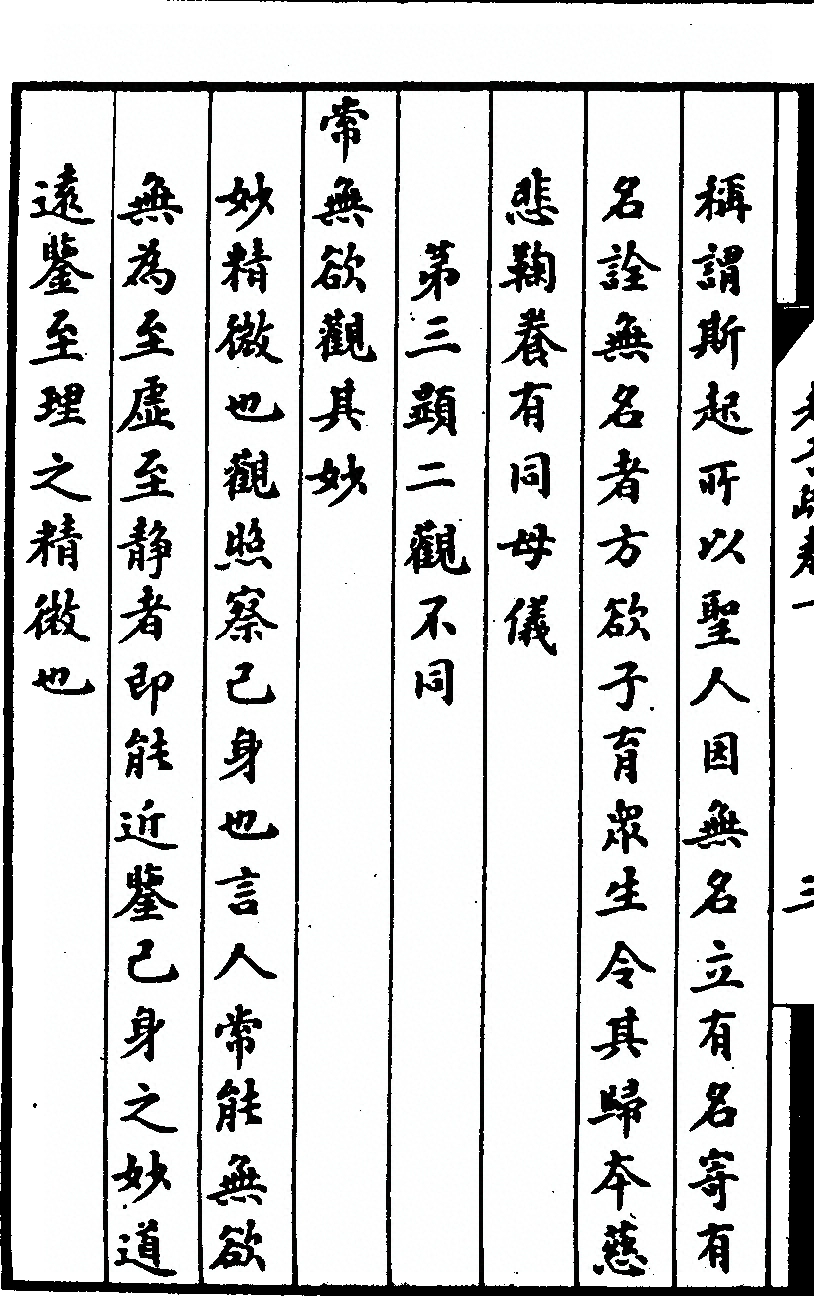 稱謂斯起所以聖人因無名立有名寄有
名詮無名者方欲子育眾生令其歸本慈
悲鞠養有同母儀
第三顯二觀不同
常無欲觀其妙
妙精微也觀照察己身也言人常能無欲
無為至虛至靜者即能近鑒己身之妙道
遠鑒至理之精微也
三